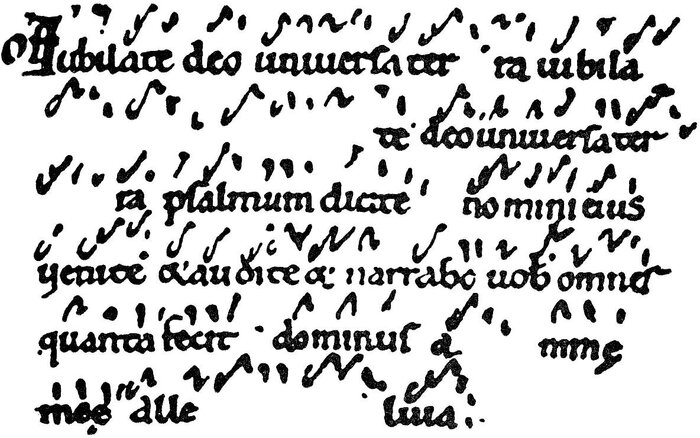 Of Iubilate deo uniuersa ter ra iubila
te deo uniuersa ter
ra psalmum dicite nomini eius
uenite & audite & narrabo uob omnes
quanta fecit dominus a nimę
meę alle luia